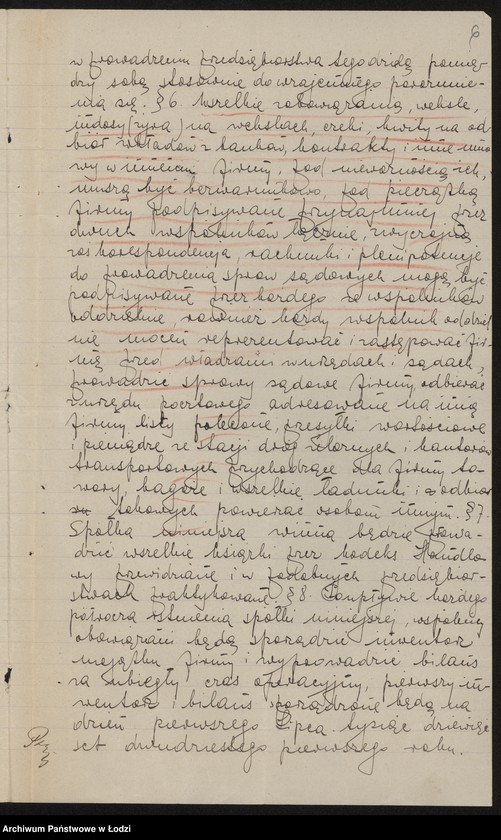 6
w prowadzeniu przedsiębiorstwa tego dzielą pomię-
dzy sobą stosownie do wzajemnego porozumie-
nia się. § 6. Wszelkie zobowiązania, weksle,
indosy (żyra) na wekslach, czeki, kwity na od-
biór wkładów z banków, kontrakty i inne umo-
wy w imieniu firmy, pod nieważnością ich,
muszą być bezwarunkowo, pod pieczątką
firmy podpisywane przynajmniej przez
dwuch wspólników łącznie, zwyczajna
zaś korespondencja, rachunki i plenipotencje
do prowadzenia spraw sądowych mogą być
podpisywane przez każdego ze wspólników
oddzielnie, również każdy wspólnik oddziel-
nie mocen reprezentować i zastępować fir-
mę przed władzami w urzędach i sądach,
prowadzić sprawy sądowe firmy, odbierać
z urzędu pocztowego adresowane na imię
firmy listy polecone, przesyłki wartościowe
i pieniądze ze stacji dróg żelaznych i kantorów
transportowych przychodzące dla firmy to-
wary, bagaże i wszelkie ładunki i odbiór
takowych powierzać osobom innym. § 7.
Spółka niniejsza winna będzie prowa-
dzić wszelkie książki przez kodeks Handlo-
wy przewidziane i w podobnych przedsiębior-
stwach praktykowane. § 8. Po upływie każdego
półrocza istnienia spółki niniejszej, wspólnicy
obowiązani będą sporządzić inwentarz
majątku firmy i wyprowadzić bilans
za ubiegły czas operacyjny, pierwszy in-
wentarz i bilans sporządzone będą na
dzień pierwszego Lipca tysiąc dziewięć-
set dwudziestego pierwszego roku.
Archiwum Państwowe w Łodzi